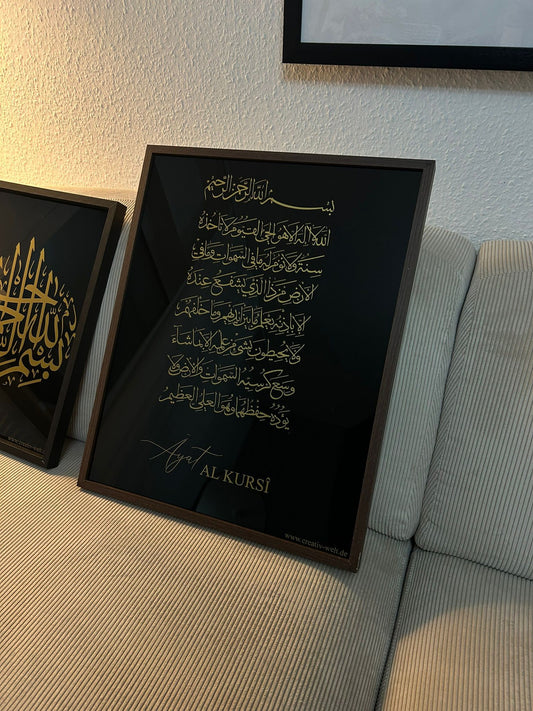 بسم الله الرحمن الرحيم
الله لا إله إلا هو الحي القيوم لا تأخذه
سنة ولا نوم له ما في السموات وما في
الأرض من ذا الذي يشفع عنده
إلا بإذنه يعلم ما بين أيديهم وما خلفهم
ولا يحيطون بشيء من علمه إلا بما شاء
وسع كرسيه السموات والأرض ولا
يؤده حفظهما وهو العلي العظيم
Ayat AL KURSÎ
www.creativ-welt.de
بسم الله
www.creativ-welt.de